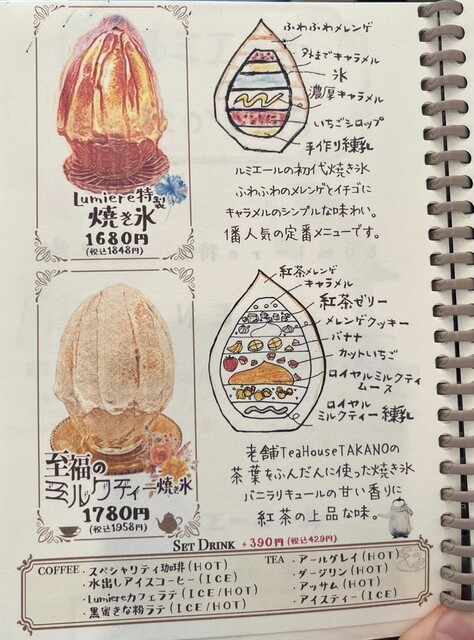 Lumiere特製
焼き氷
1680円
(税込1848円)
ふわふわメレンゲ
外までキャラメル
氷
濃厚キャラメル
いちごシロップ
手作り練乳
ルミエールの初代焼き氷
ふわふわのメレンゲとイチゴに
キャラメルのシンプルな味わい。
1番人気の定番メニューです。
至福の
ミルクティー焼き氷
1780円
(税込1958円)
紅茶メレンゲ
キャラメル
紅茶ゼリー
メレンゲクッキー
バナナ
カットいちご
ロイヤルミルクティ
ムース
ロイヤル
ミルクティー練乳
老舗TeaHouseTAKANOの
茶葉をふんだんに使った焼き氷
バニラリキュールの甘い香りに
紅茶の上品な味。
SET DRINK +390円(税込429円)
COFFEE
・スペシャリティ珈琲(HOT)
・水出しアイスコーヒー(ICE)
・Lumiereカフェラテ(ICE/HOT)
・黒蜜きな粉ラテ(ICE/HOT)
TEA
・アールグレイ(HOT)
・ダージリン(HOT)
・アッサム(HOT)
・アイスティー(ICE)